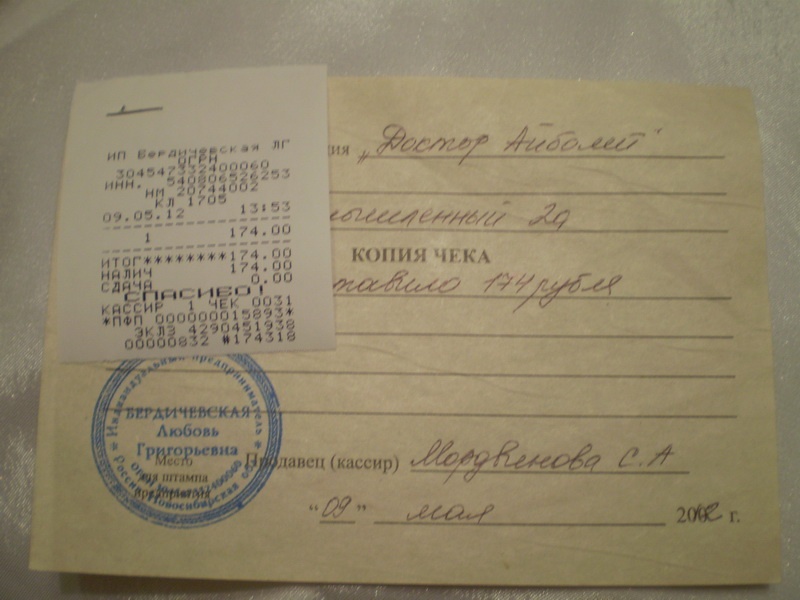 ИП Бердичевская ЛГ
ОГРН
304547332400060
ИНН. 540806526253
НМ 20744002
КЛ 1705
09.05.12 13:53
1 174.00
ИТОГ********174.00
НАЛИЧ 174.00
СДАЧА 0.00
СПАСИБО!
КАССИР 1 ЧЕК 0031
*ПФП 000000015893*
ЭКЛЗ 4290451938
00000832 #174318
ия „Доктор Айболит"
мышленный 2а
КОПИЯ ЧЕКА
тавило 174 рубля
Индивидуальный предприниматель
БЕРДИЧЕВСКАЯ
Любовь
Григорьевна
Место
для штампа
предприятия
Продавец (кассир) Мордвенова С.А
"09" мая 2012 г.